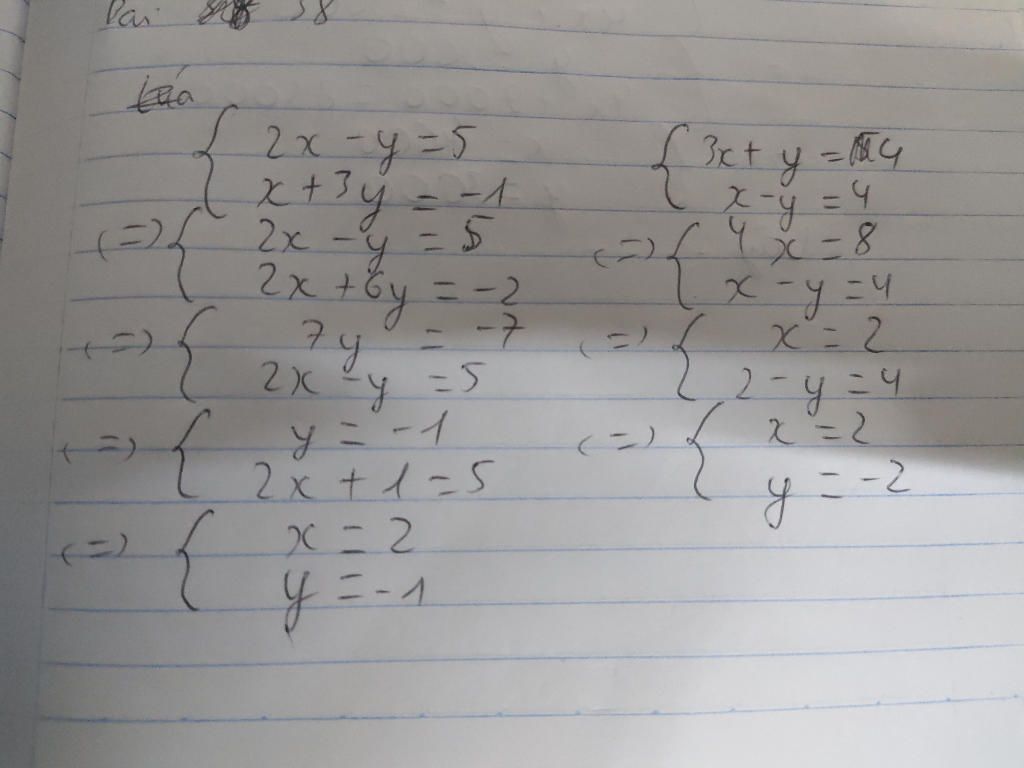 Bài 38
2x - y = 5
x + 3y = -1
(=) 2x - y = 5
2x + 6y = -2
(=) 7y = -7
2x - y = 5
(=) y = -1
2x + 1 = 5
(=) x = 2
y = -1
3x + y = 4
x - y = 4
(=) 4x = 8
x - y = 4
(=) x = 2
2 - y = 4
(=) x = 2
y = -2